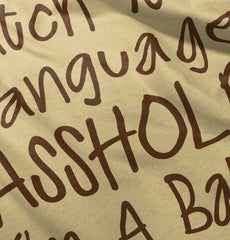 tch
anguage
ASSHOL
A Ba